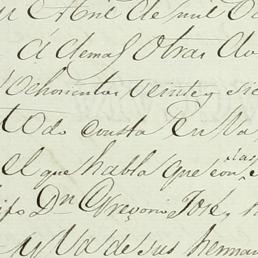 Abril de mil
á demas Otras do
Ochocientos veinte y sie
do consta En la
el que habla que con las
Dn Gregorio José, y
y la de sus herman